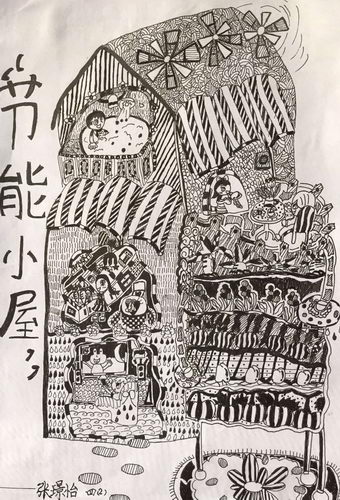 “节能小屋”
张璟怡 四(2)